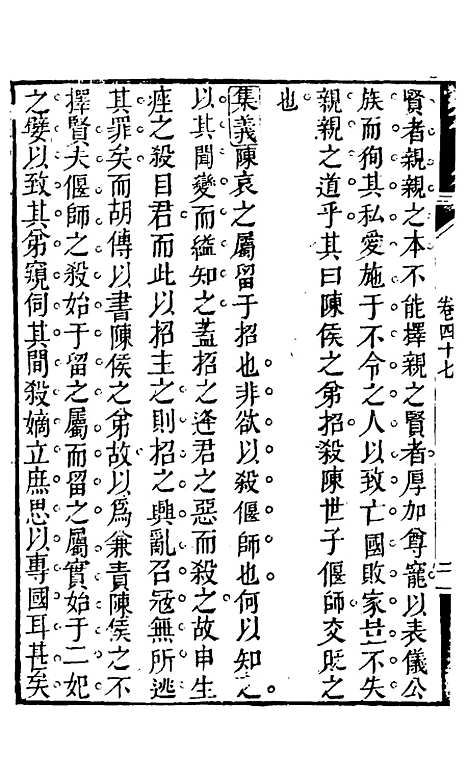 賢者親親之本不能擇親之賢者厚加尊寵以表儀公
族而徇其私愛施于不令之人以致亡國敗家豈不失
親親之道乎其曰陳侯之弟招殺陳世子偃師交貶之
也
集義陳哀之屬留于招也非欲以殺偃師也何以知之
以其聞變而縊知之蓋招之逢君之惡而殺之故申生
痤之殺目君而此以招主之則招之興亂召寇無所逃
其罪矣而胡傳以書陳侯之弟故以為兼責陳侯之不
擇賢夫偃師之殺始于留之屬而留之屬實始于二妃
之嬖以致其弟窺伺其間殺嫡立庶思以專國耳甚矣
卷四十七
二